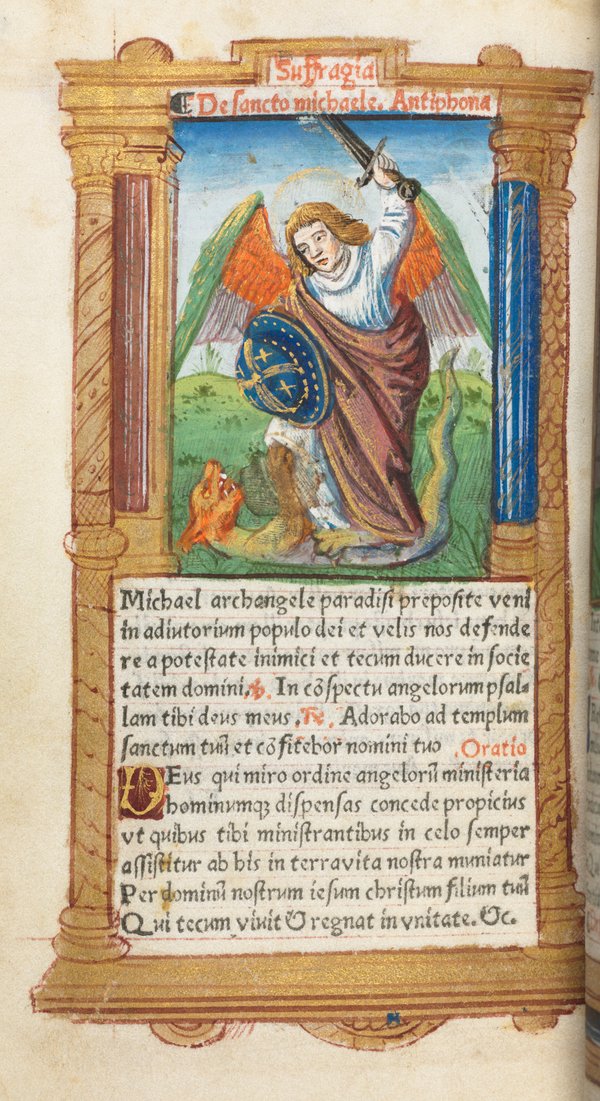 Suffragia
¶ De sancto michaele. Antiphona
Michael archangele paradisi preposite veni
in adiutorium populo dei et velis nos defende
re a potestate inimici et tecum ducere in socie
tatem domini. ℣. In cōspectu angelorum psal-
lam tibi deus meus. ℟. Adorabo ad templum
sanctum tuū et cōfitebor nomini tuo .Oratio
DEus qui miro ordine angelorū ministeria
hominumqꝫ dispensas concede propicius
vt quibus tibi ministrantibus in celo semper
assistitur ab his in terra vita nostra muniatur
Per dominū nostrum iesum christum filium tuū
Qui tecum viuit & regnat in vnitate. &c.